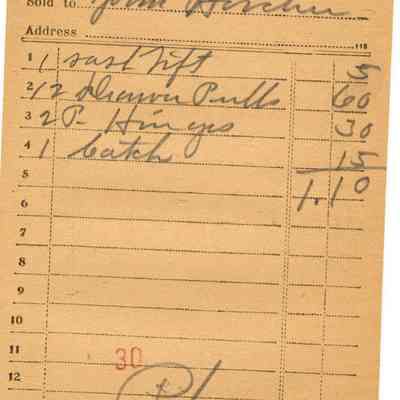 Sold to John
Address
118
1 1 sash lift 5
2 12 Drawer Pulls 60
3 2 P. Hinges 30
4 1 Catch 15
5 1.10
6
7
8
9
10
11
30
12